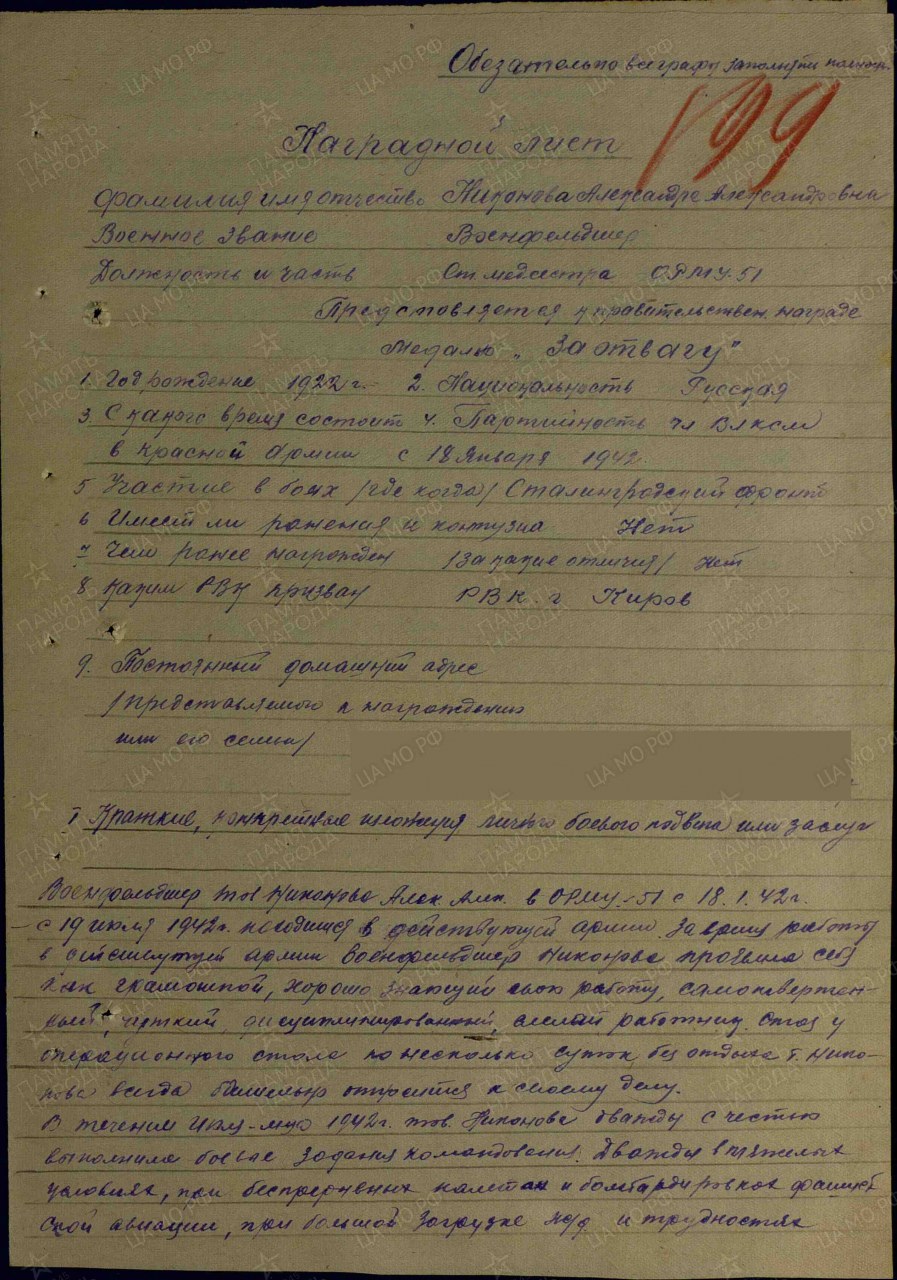 Обезательно все графы заполняти полност.
199
Наградной лист
Фамилия имя отчество Никонова Александра Александровна
Военное звание Военфельдшер
Должность и часть Ст. медсестра ОРМУ-51
Предстовляется к правительствен. награде
Медалю „За отвагу"
1. Год рождение 1922 г. 2. Национальность Русская
3. С какого время состоит 4. Партийность чл ВЛКСМ
в Красной Армии с 18 Января 1942.
5 Участие в боях /где когда/ Сталинградский фронт
6 Имеет ли ранения и контузиа Нет
7 Чем ранее награжден /за какие отличия/ нет
8 Каким РВК призван РВК. г Киров
9. Постоянный домашний адрес
/представляемого к награждению
или его семьи/
I Краткие, конкретное изложения личного боевого подвига или заслуг
Военфельдшер тов Никонова Алек. Алек. в ОРМУ-51 с 18.1.42 г.
с 19 июля 1942 г. находится в действующей армии. За время работы
в действующей армии Военфельдшер Никонова проявила себя
как грамотной, хорошо знающий свою работу, самоотвержен-
ный, чуткий, дисциплинированный, смелый работник. Стоя у
операционного стола по несколько суток без отдыха т. Нико-
нова всегда относится к своему делу.
В течении 1942 г. тов. Никонова дважды с честью
выполнила боевые задания командования. Дважды в тяжелых
условиях, при беспрерывных налетах и бомбардировках фашист
ской авиации, при большой загрузке и трудностях
ЦАМО.РФ
ПАМЯТЬ НАРОДА